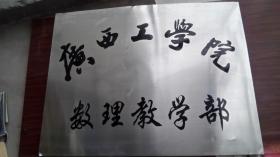 廣西工學院
数理教学部